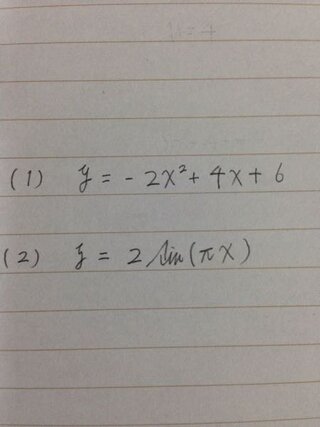 (1) y = - 2x² + 4x + 6
(2) y = 2 sin(πx)